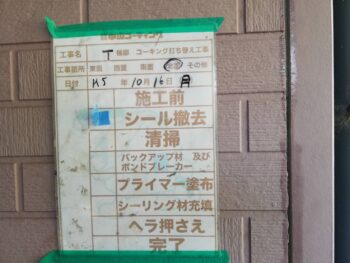 工事名 T 様邸 コーキング打ち替え工事
工事箇所 東面 西面 南面 北面 その他
日付 R5 年 10 月 16 日 月
施工前
シール撤去
清掃
バックアップ材 及び
ボンドブレーカー
プライマー塗布
シーリング材充填
ヘラ押さえ
完了